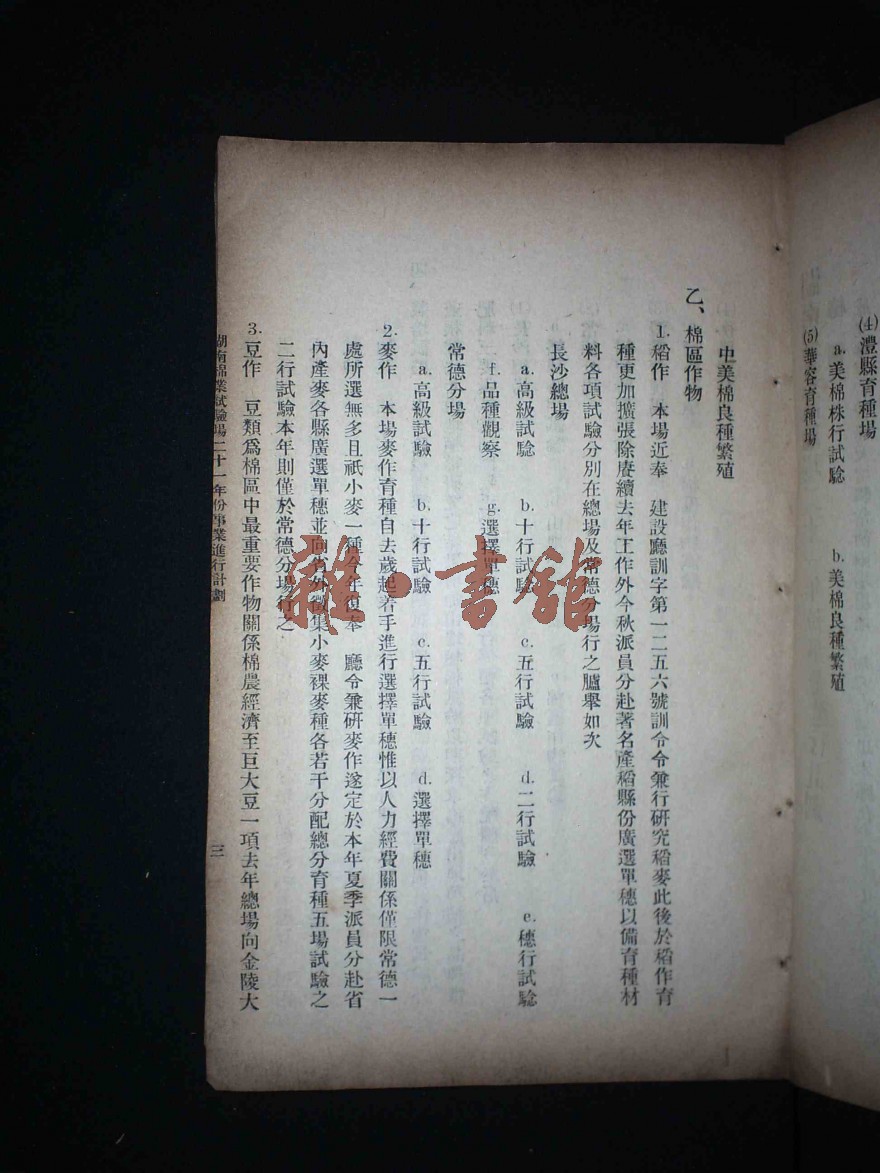 ⑷澧縣育種場
a.美棉株行試驗 b.美棉良種繁殖
⑸華容育種場
中美棉良種繁殖
乙、棉區作物
1.稻作 本場近奉 建設廳訓字第一二五六號訓令令兼行研究稻麥此後於稻作育
種更加擴張除賡續去年工作外今秋派員分赴著名產稻縣份廣選單穗以備育種材
料各項試驗分別在總場及常德分場行之臚舉如次
長沙總場
a.高級試驗 b.十行試驗 c.五行試驗 d.二行試驗 e.穗行試驗
f.品種觀察 g.選擇單穗
常德分場
a.高級試驗 b.十行試驗 c.五行試驗 d.選擇單穗
2.麥作 本場麥作育種自去歲起着手進行選擇單穗惟以人力經費關係僅限常德一
處所選無多且祇小麥一種今年復奉 廳令兼研麥作遂定於本年夏季派員分赴省
內產麥各縣廣選單穗並向省外徵集小麥裸麥種各若干分配總分育種五場試驗之
二行試驗本年則僅於常德分場行之
3.豆作 豆類爲棉區中最重要作物關係棉農經濟至巨大豆一項去年總場向金陵大
湖南棉業試驗場二十一年份事業進行計劃
三
雜·書館